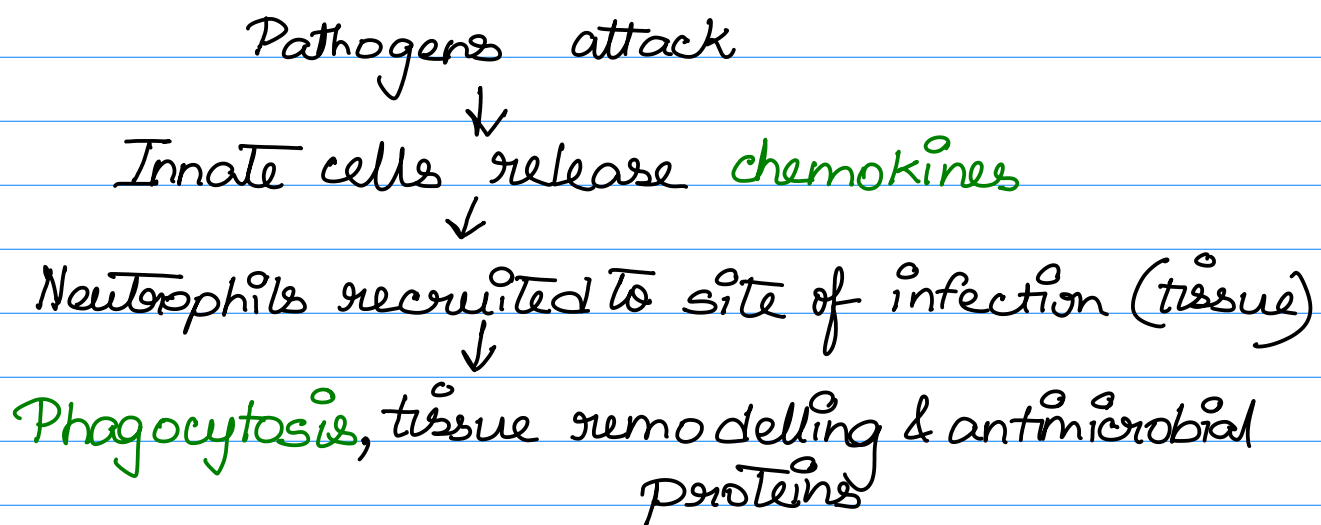 Pathogens attack
↓
Innate cells release chemokines
↓
Neutrophils recruited to site of infection (tissue)
↓
Phagocytosis, tissue remodelling & antimicrobial
proteins